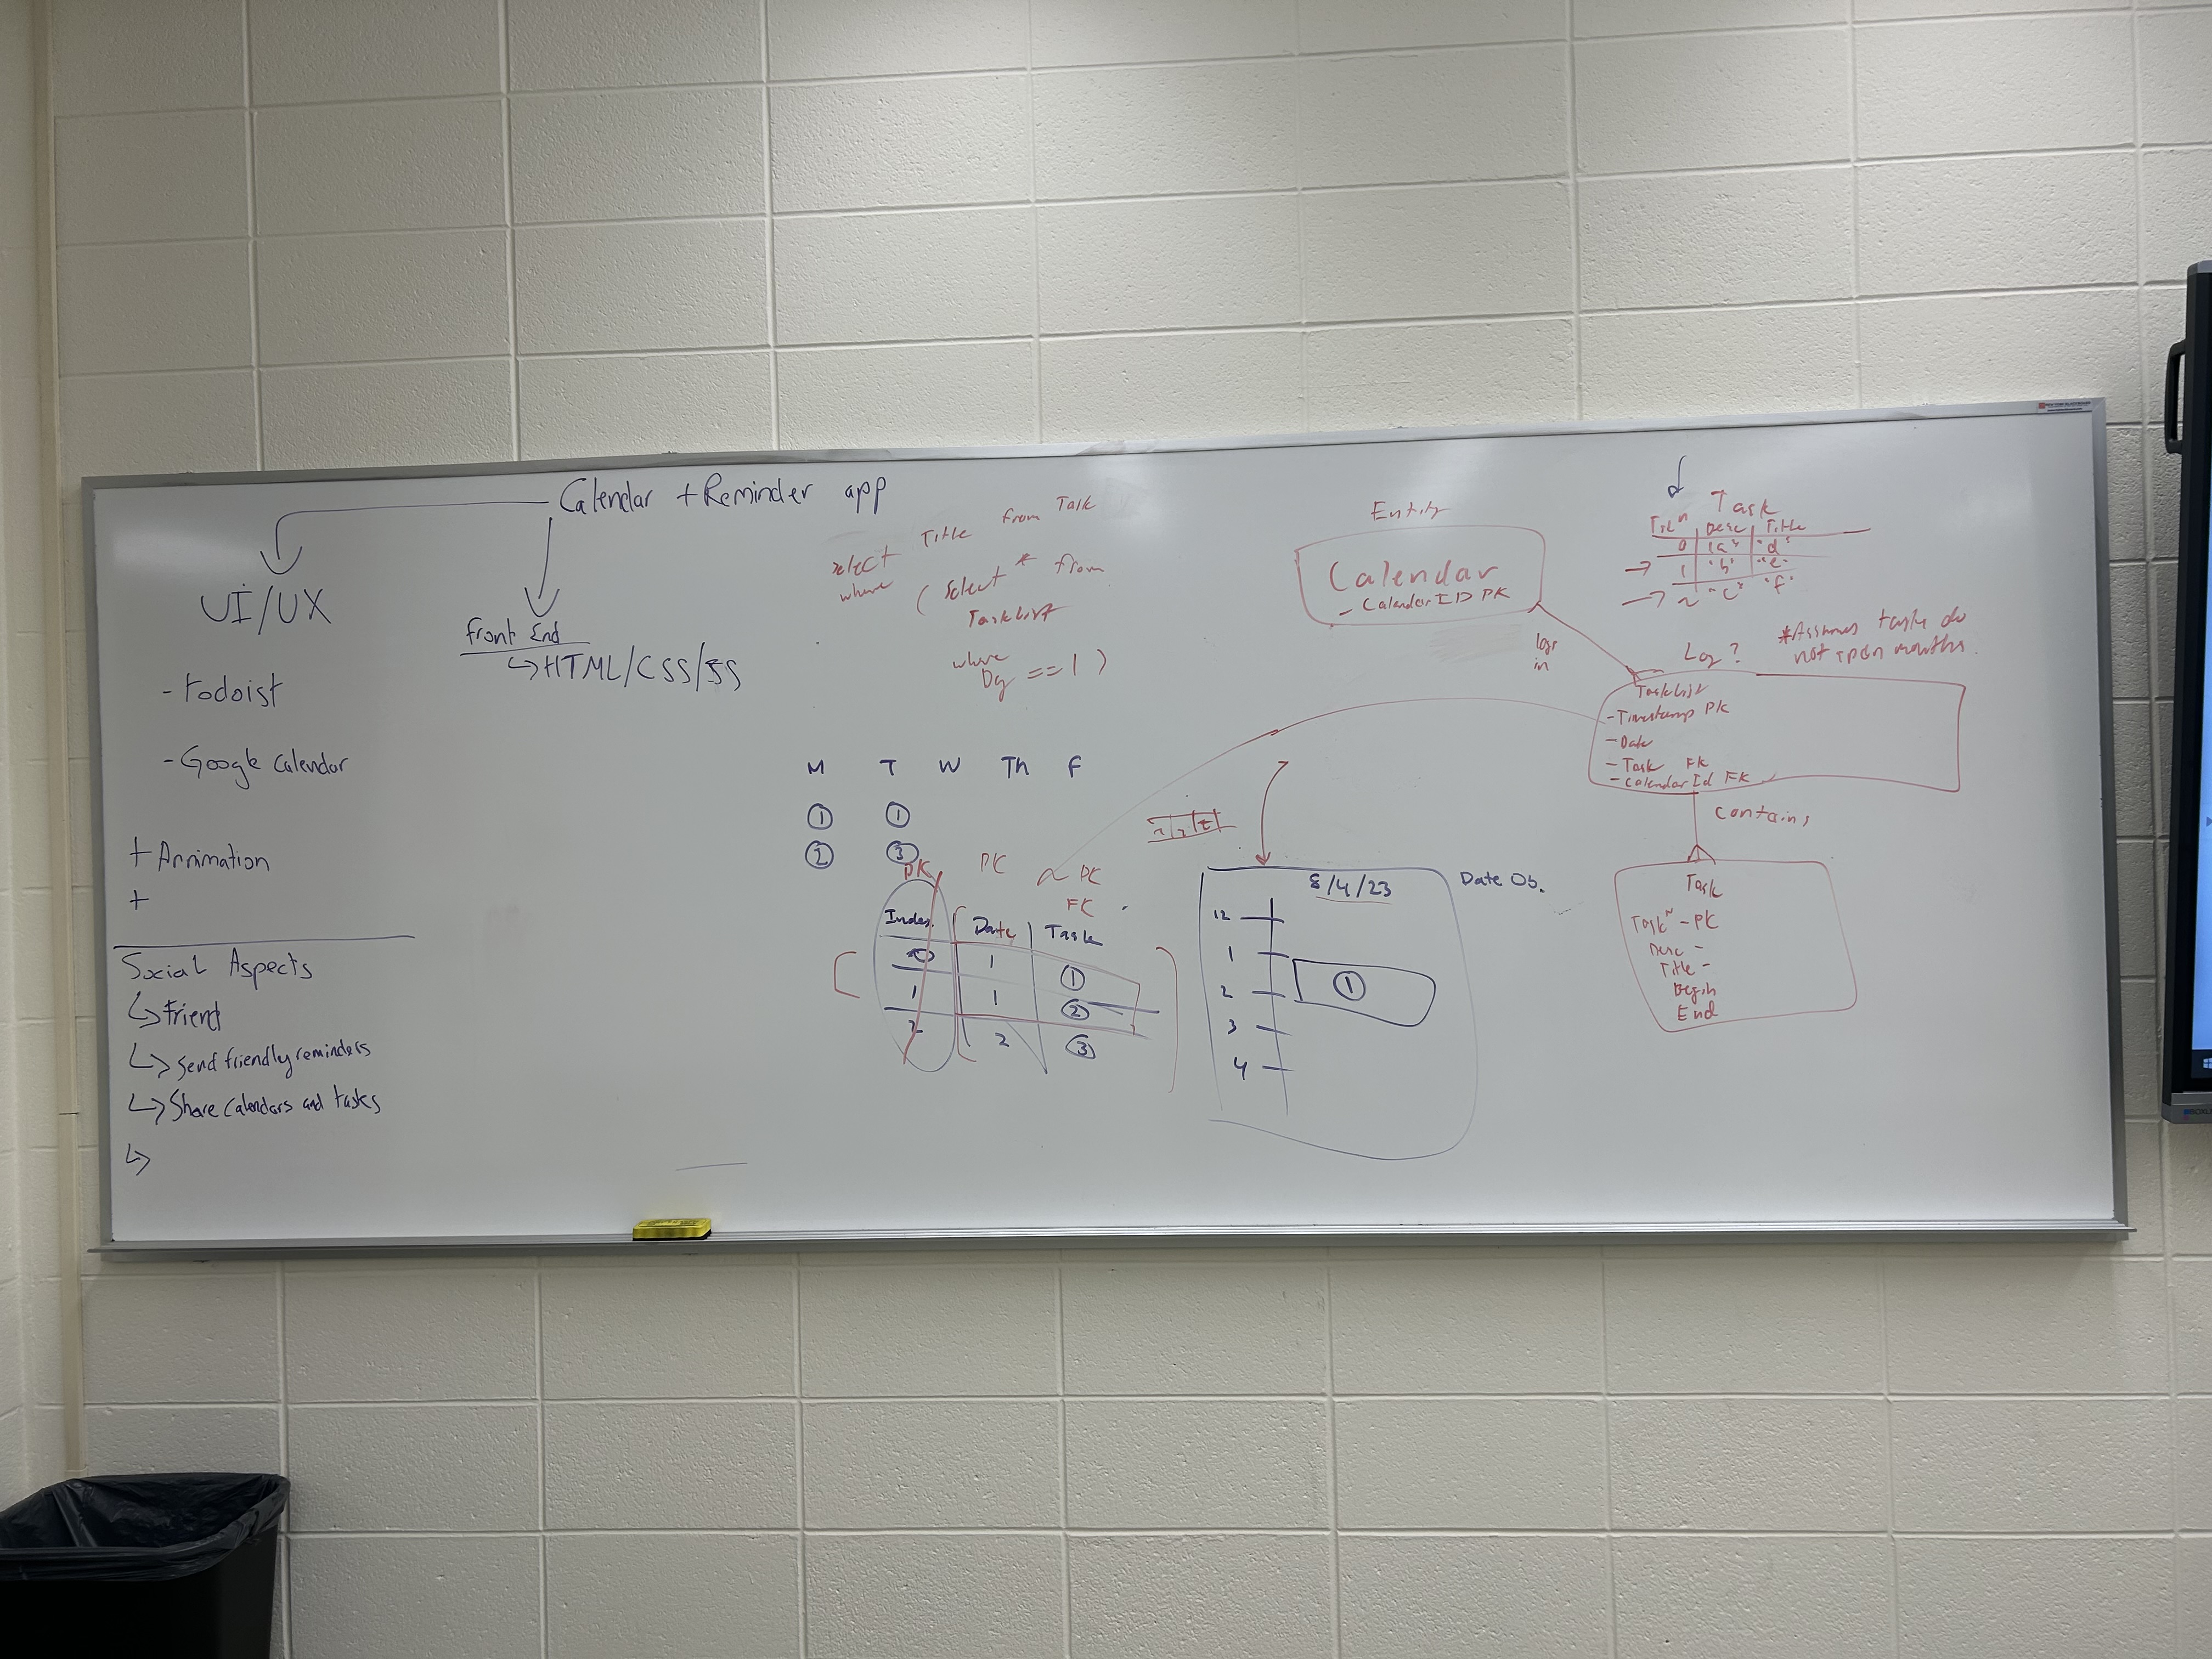 Calendar + Reminder app
UI/UX
- Todoist
- Google Calendar
+ Annimation
+
Social Aspects
↳ Friend
↳ Send friendly reminders
↳ Share Calendars and tasks
↳
Front End
↳ HTML/CSS/JS
select Title from Task
where (select * from
TaskList
where
Dy == 1)
M T W Th F
① ①
② ③
PK PK PK
FK
Index Date Task
0 1 ①
1 1 ②
2 2 ③
8/4/23
Date Ob.
12
1
2
3
4
①
Entity
Calendar
- CalendarID PK
logs
in
Task
Desc Title
0 "a" "d"
→ 1 "b" "e"
→ 2 "c" "f"
Log?
*Assumes tasks do
not span months.
TaskList
- Timestamp PK
- Date
- Task FK
- Calendar Id FK
Contains
Task
Task - PK
Desc -
Title -
Begin
End